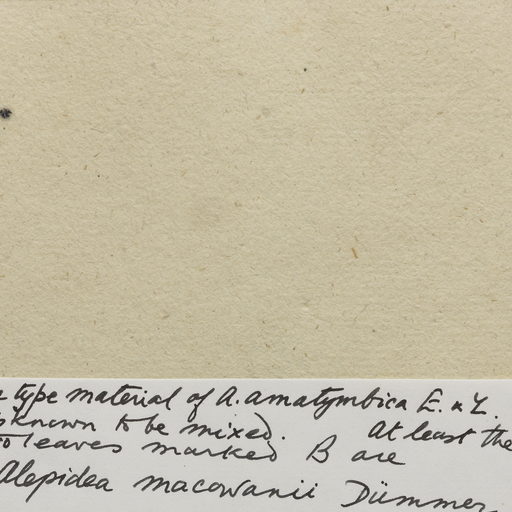 type material of A. amatymbica E. & Z.
known to be mixed. At least the
leaves marked B are
Alepidea macowanii Dümmer